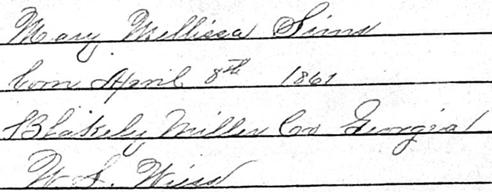 Mary Mellissa Sims
born April 8th 1861
Blakely Miller Co Georgia
W. S.